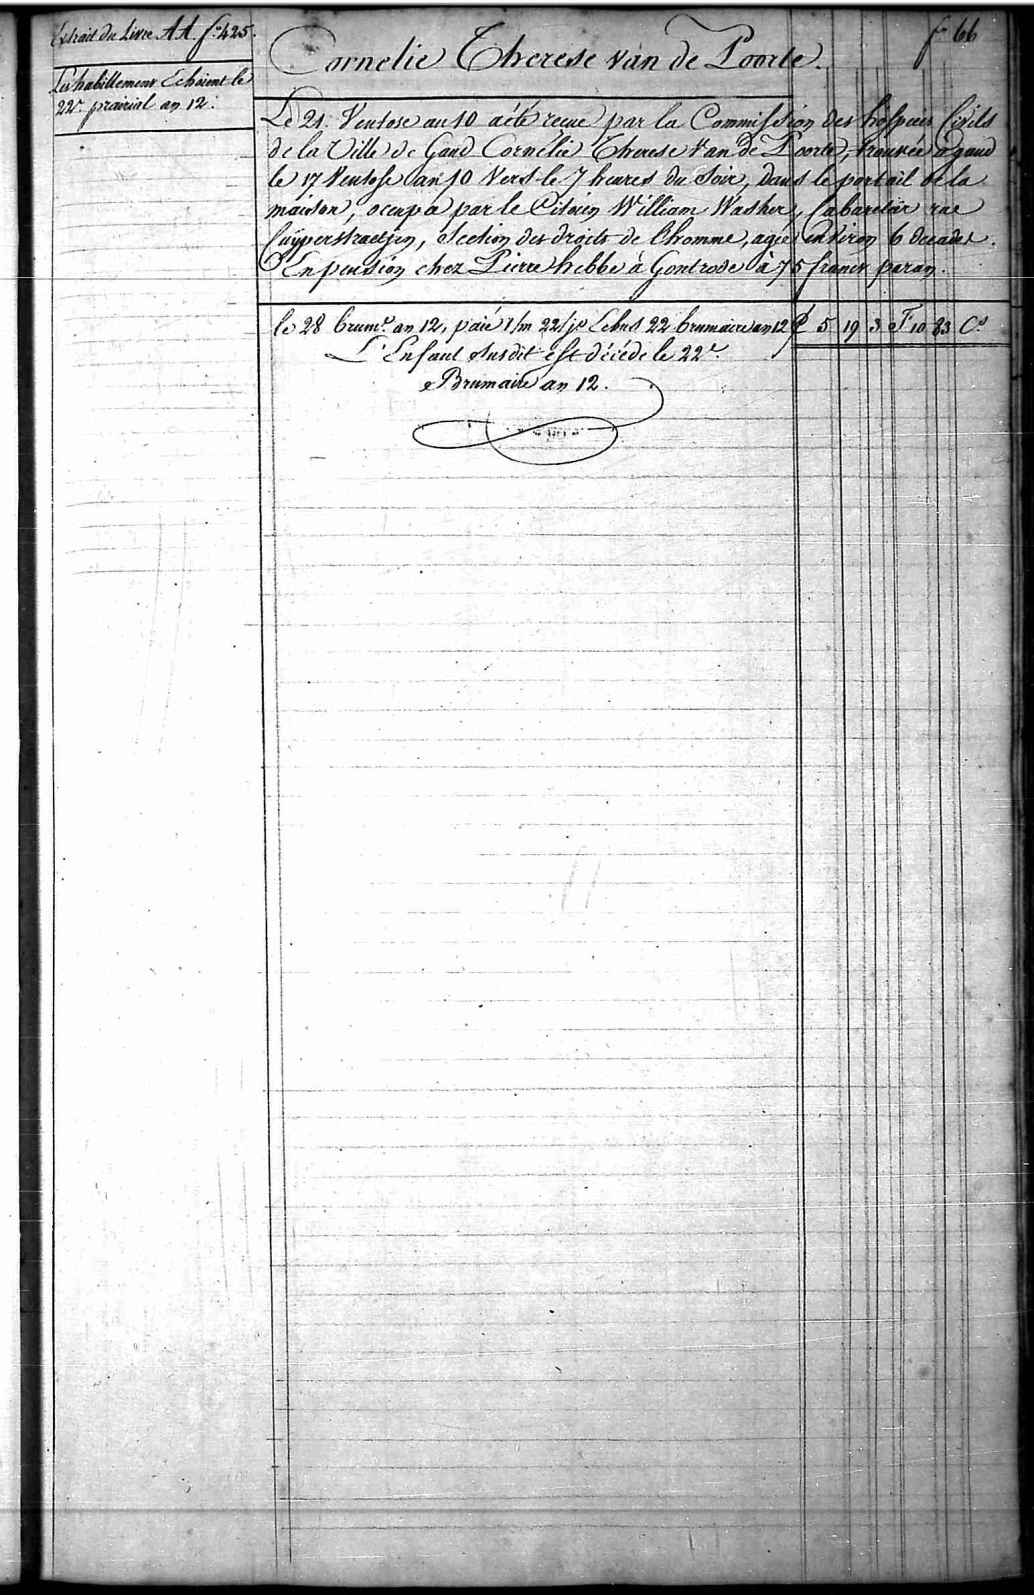 Extrait du Livre AA. f.º 425.
Les habillemens Echoient le
22.e prairial an 12.
f.º 66
Cornelie Therese van de Poorte.
Le 21. Ventose an 10 a été recue par la Commission des hospices Civils
de la Ville de Gand Cornélie Therese Van de Poorte, trouvée a gand
le 17 Ventose an 10 Vers le 7 heures du Soir, dans le portail de la
maison, occupa par le Citoien William Washer, Cabaretier rue
Cuyperstraetjen, Section des droits de l'homme, agée environ 6 decades.
En pension chez Pierre hebbe à Gontrode à 75 francs par an.
le 28 brum.e an 12, paié 1/m 22/js Echus 22 brumaire an 12 £ 5 19 3 F 10 83 C.s
L'Enfant Susdit est décéde le 22.e
Brumaire an 12.